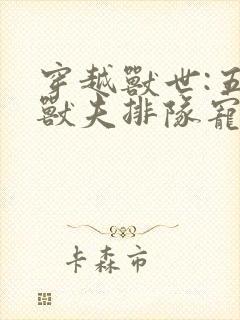 穿越獸世:五
獸夫排隊寵
卡森市